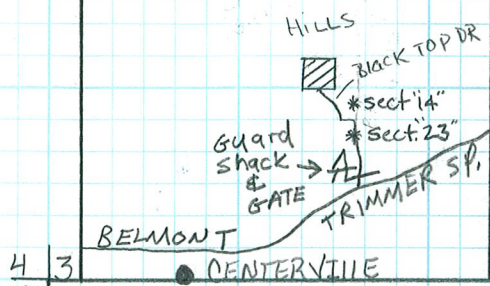 HILLS
Black TOP DR
* sect "14"
* sect. "23"
Guard
shack
&
GATE
TRIMMER SP.
BELMONT
4 3
CENTERVILLE